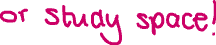 or study space!